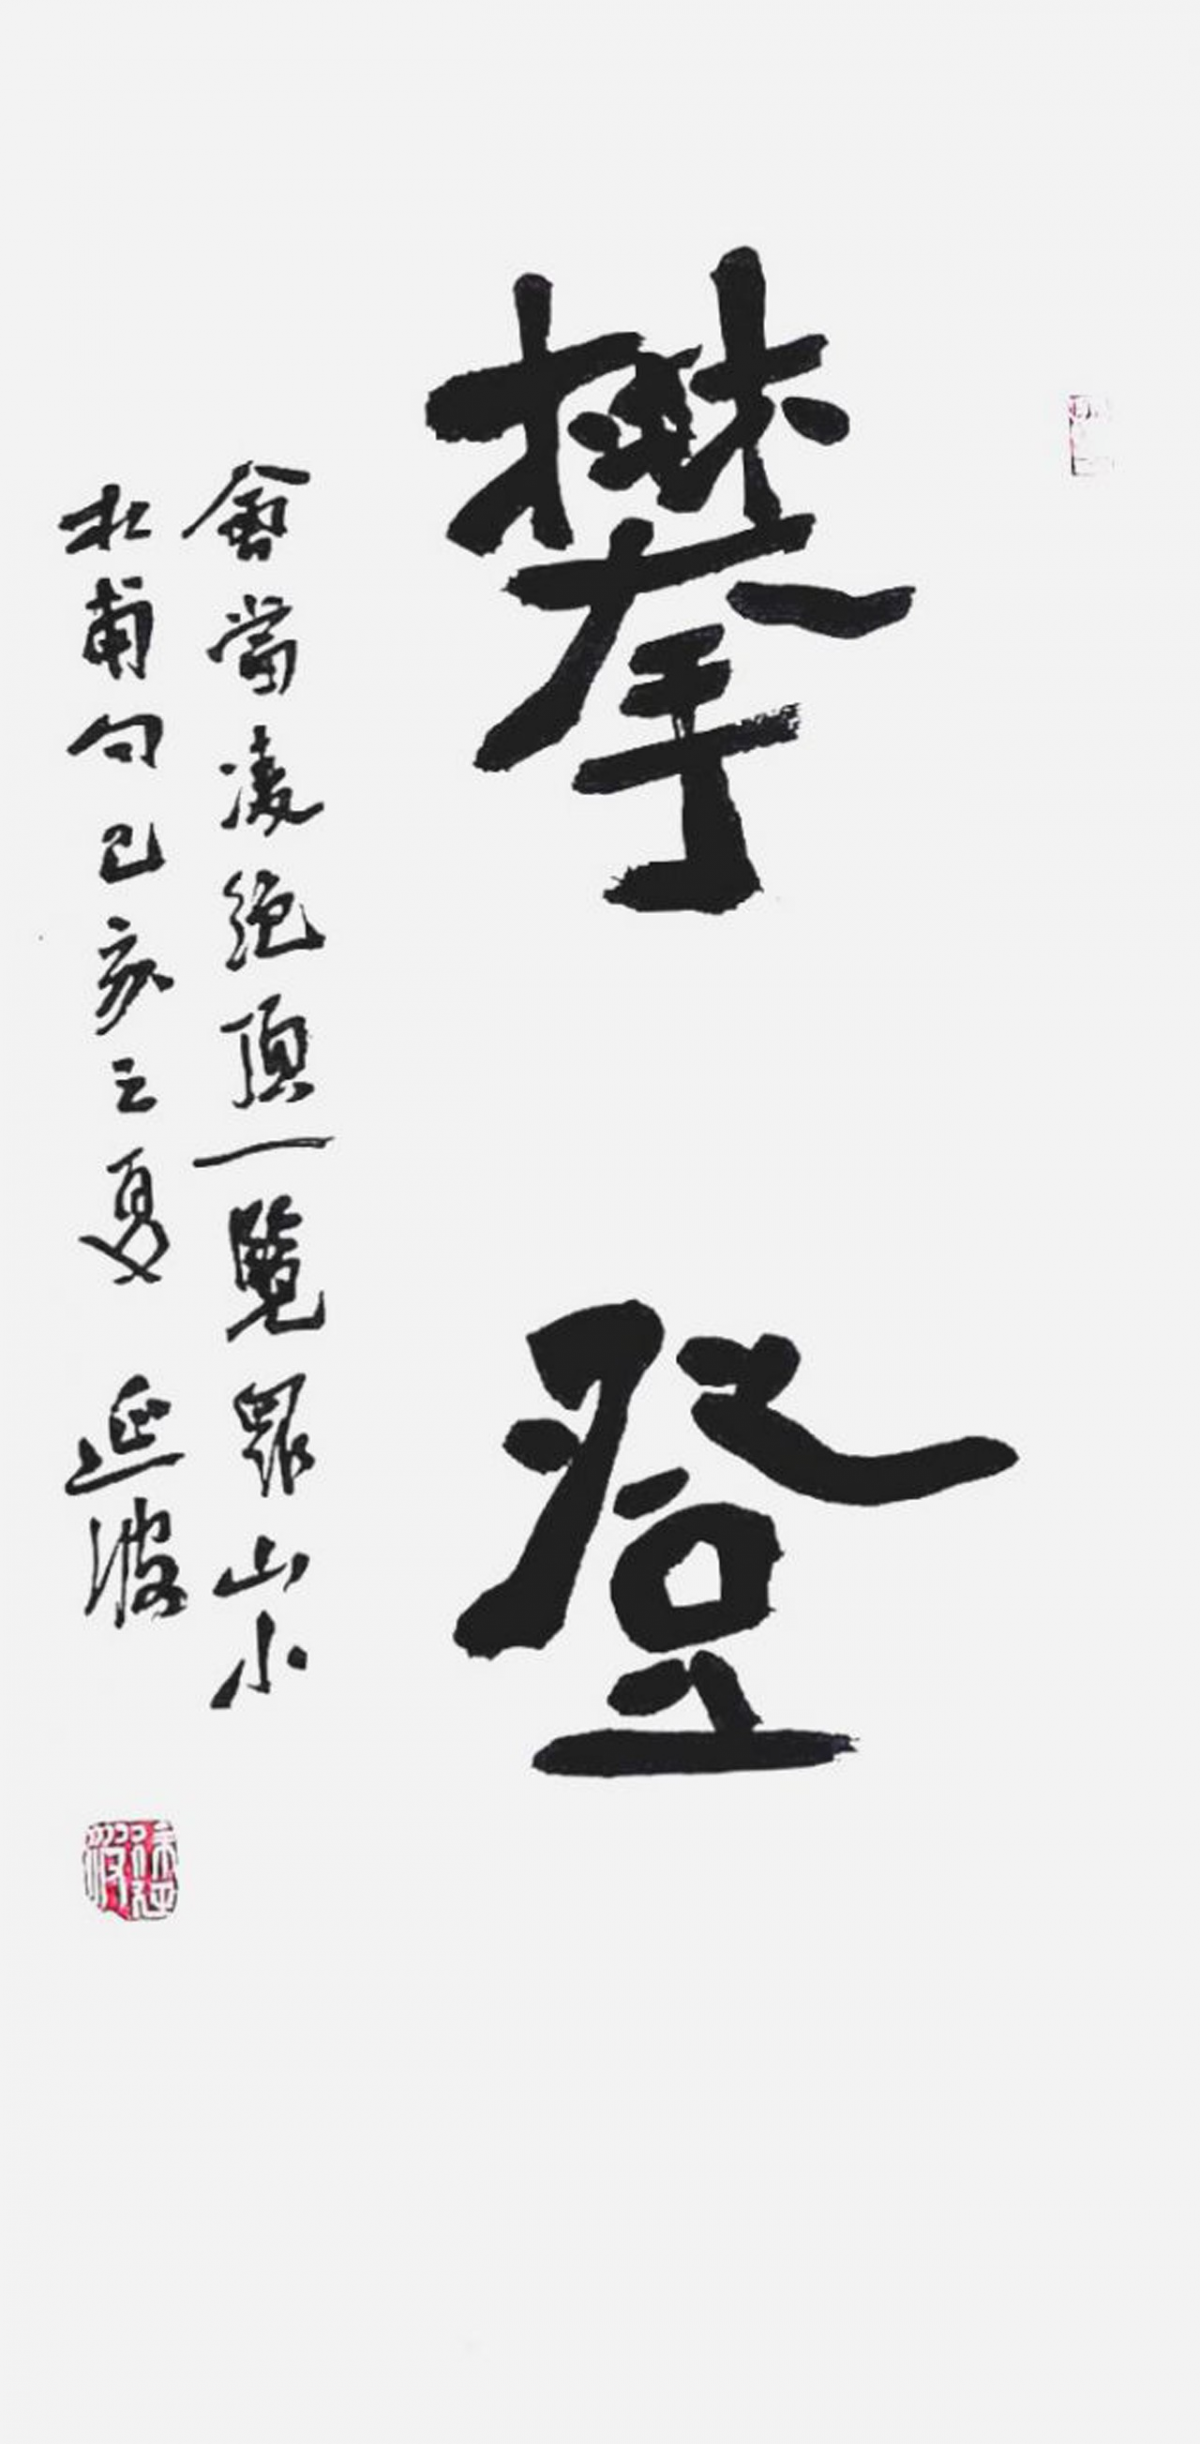 攀登
會當凌絕頂一覽眾山小
杜甫句己亥之夏 延波